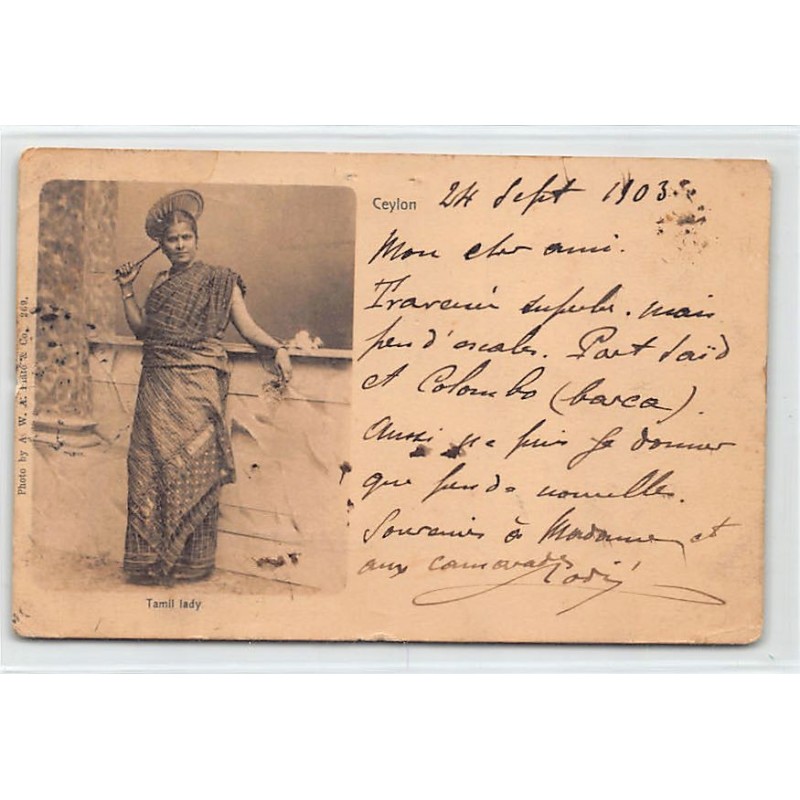 Ceylon 24 Sept 1903
Mon cher ami.
Traversée superbe. mais
peu d'escales. Port Saïd
et Colombo
Aussi ne puis je donner
que peu de nouvelles.
Souvenirs à Madame et
aux camarades
Photo by A. W. A. & Co. 269.
Tamil lady